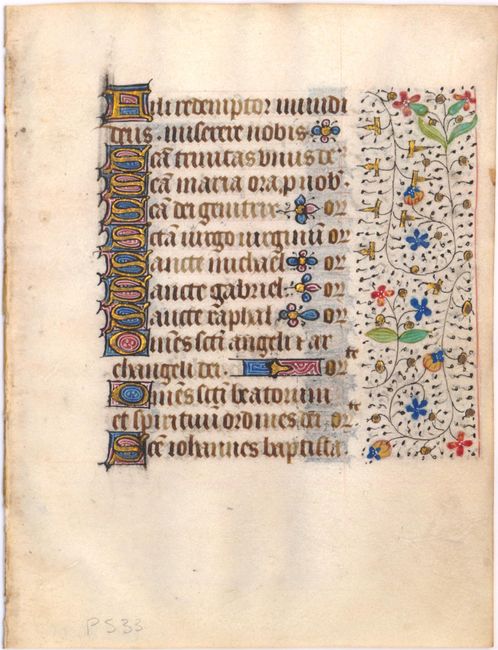 Fili redemptor mundi
deus . miserere nobis
Sca trinitas unus de
Sca maria ora p nob.
Sca dei genitrix or
Scta uirgo uirginu or
Sancte michael or
Sancte gabriel or
Sancte raphael or
Omes scti angeli et ar
changeli dei. or te
Omes scti beatorum
et spirituu ordines dei or te
Sce iohannes baptista.
PS33